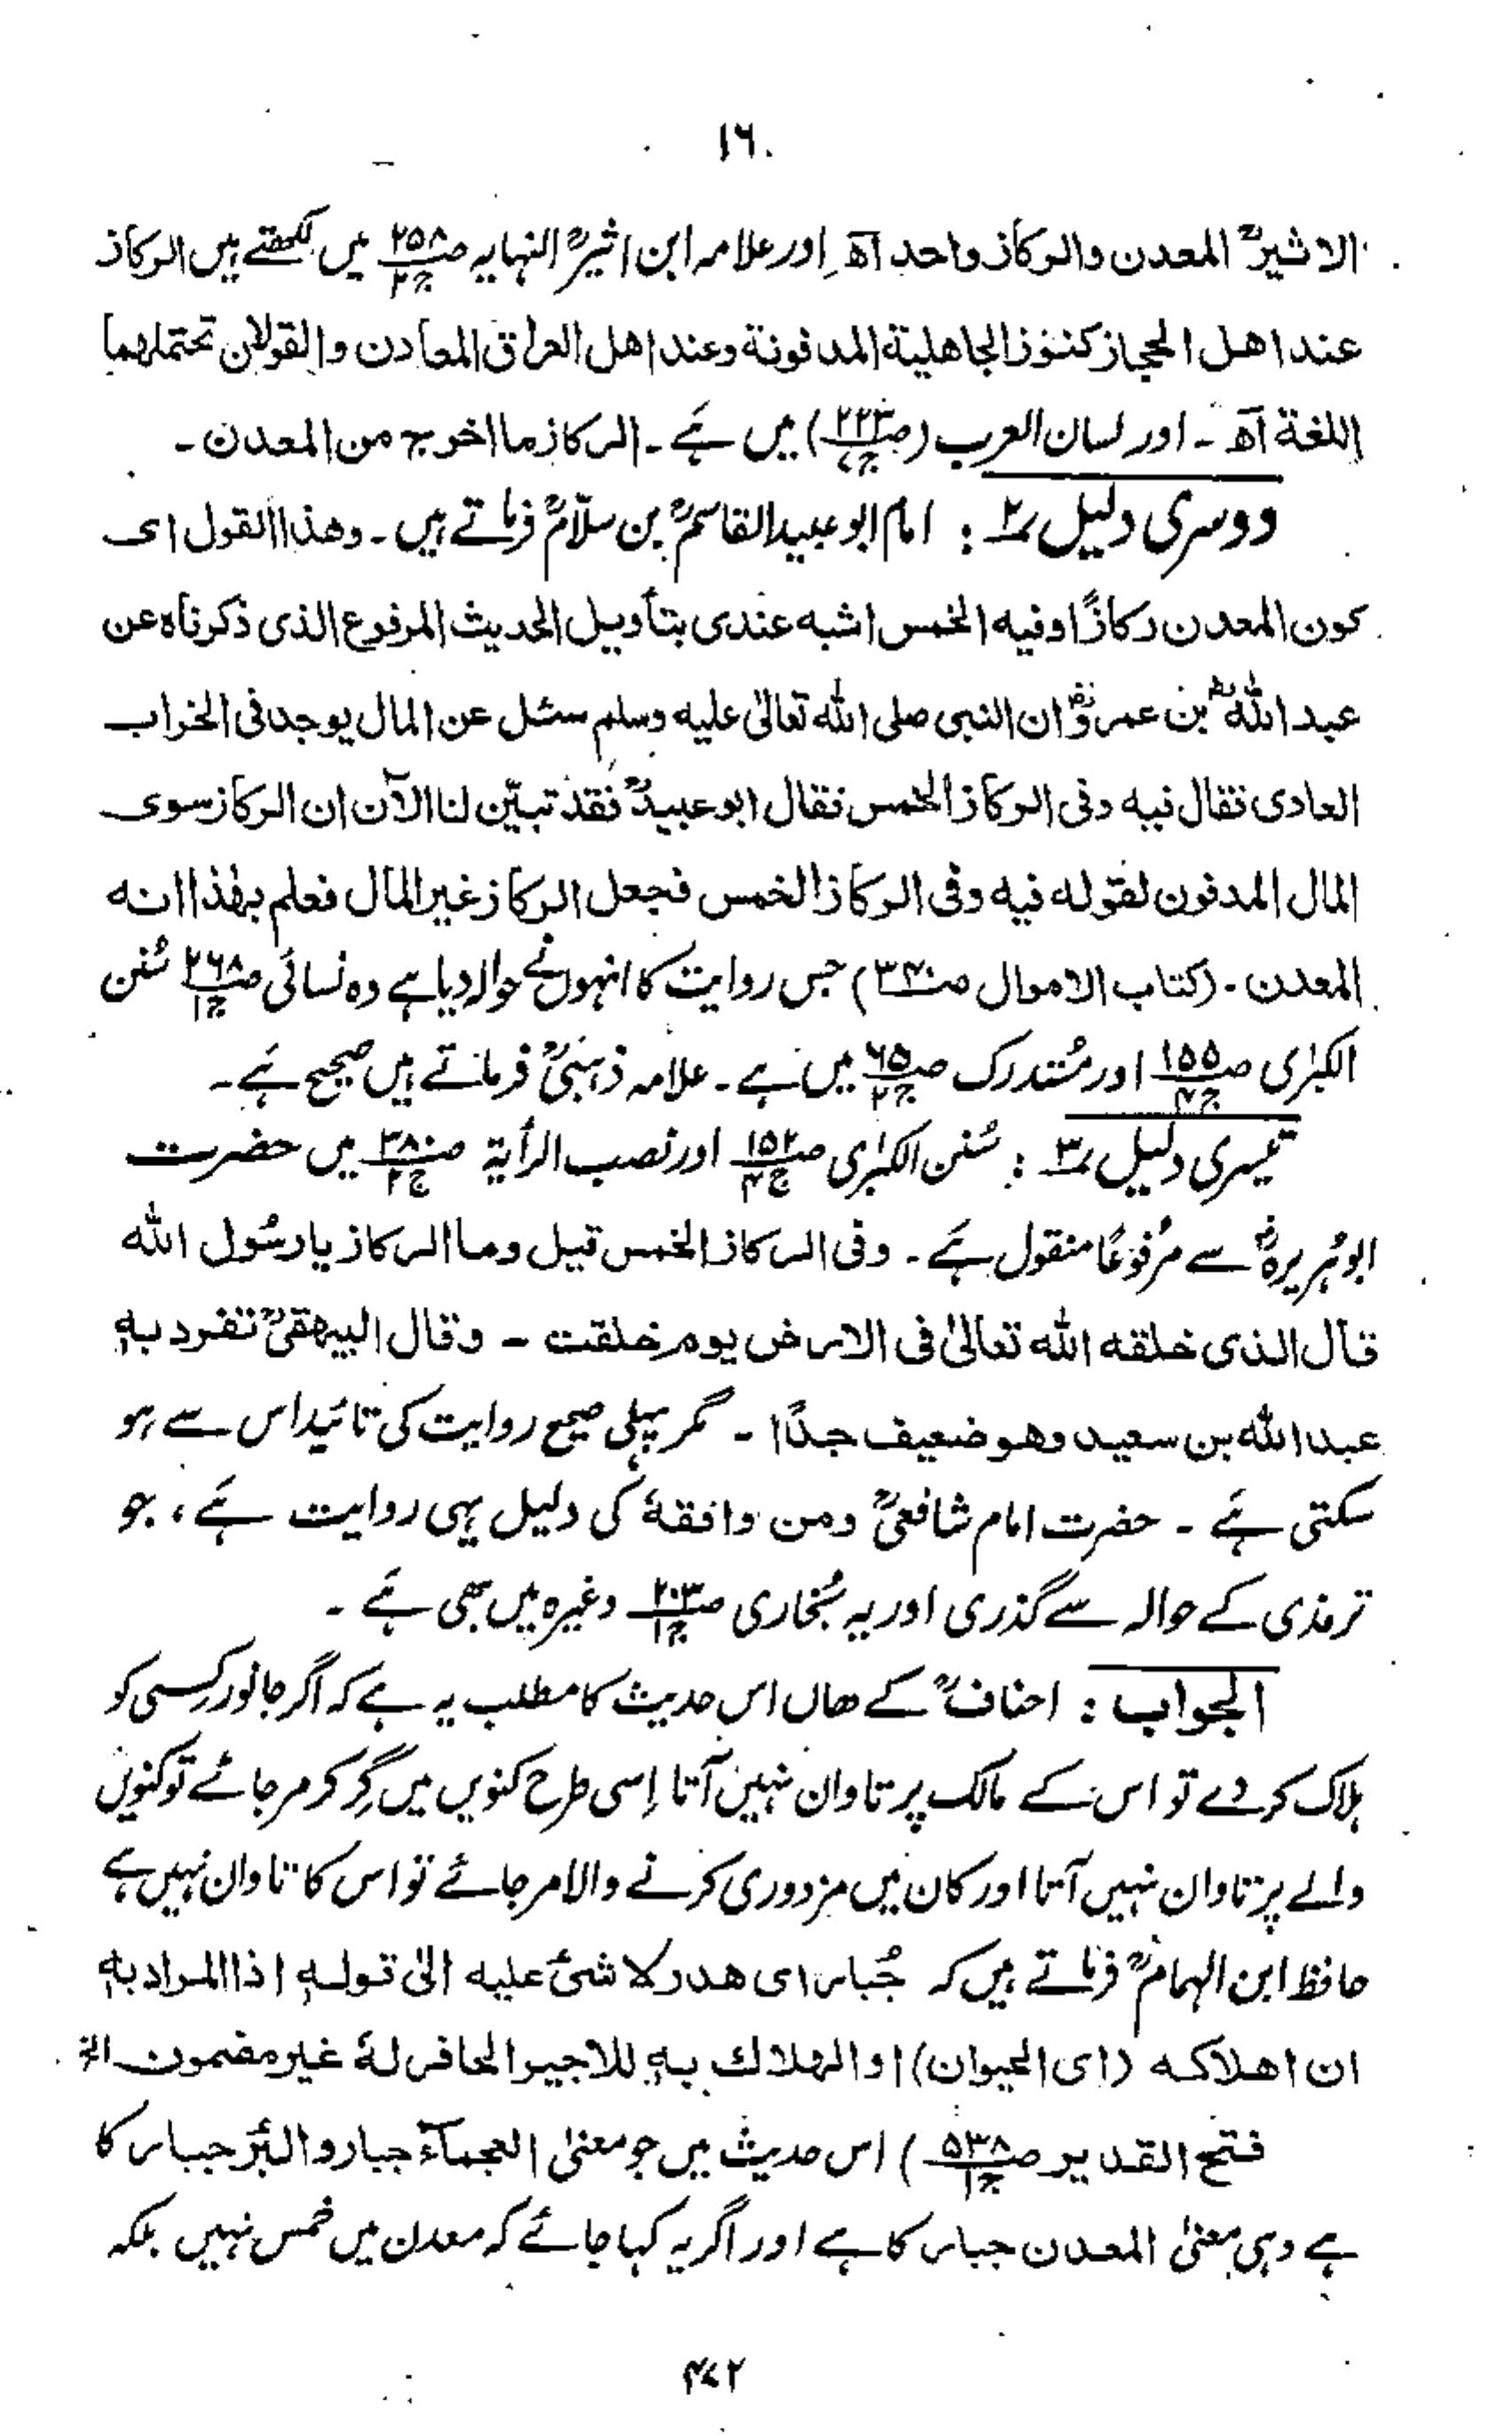 ۱۶۰
الاثیرؒ المعدن والرکاز واحد آھ اور علامہ ابن اثیرؒ النہایہ ص۲۵۸ ج۲ میں لکھتے ہیں الرکاز
عند اھل الحجاز کنوز الجاھلیة المدفونة وعند اھل العراق المعادن والقولان تحتملھما
اللغة آھ ۔ اور لسان العرب (ص۲۲۳ ج۷) میں ہے ۔ الرکاز ما اخرج من المعدن ۔
دوسری دلیل ۲ : امام ابو عبید القاسمؒ بن سلّامؒ فرماتے ہیں ۔ وھذا القول ای
کون المعدن رکازًا وفیہ الخمس اشبہ عندی بتأویل الحدیث المرفوع الذی ذکرناہ عن
عبد اللہؓ بن عمروؓ ان النبی صلی اللہ تعالیٰ علیہ وسلم سئل عن المال یوجد فی الخراب
العادی فقال فیہ وفی الرکاز الخمس فقال ابو عبیدؒ فقد تبیّن لنا الآن ان الرکاز سوی
المال المدفون لقولہ فیہ وفی الرکاز الخمس فجعل الرکاز غیر المال فعلم بھٰذا انہ
المعدن ۔ (کتاب الاموال ص۳۴۰) جس روایت کا انہوں نے حوالہ دیا ہے وہ نسائی ص۲۶۸ ج۱ سُنن
الکبرٰی ص۱۵۵ ج۴ اور مُستدرک ص۶۵ ج۲ میں ہے ۔ علامہ ذہبیؒ فرماتے ہیں صحیح ہے ۔
تیسری دلیل ۳ : سُنن الکبرٰی ص۱۵۲ ج۴ اور نصب الرأیة ص۳۸۰ ج۲ میں حضرت
ابو ہُریرہؓ سے مرفوعًا منقول ہے ۔ وفی الرکاز الخمس قیل وما الرکاز یا رسُول اللہ
قال الذی خلقہ اللہ تعالیٰ فی الارض یوم خلقت ۔ وقال البیھقیؒ تفرد بہٖ
عبد اللہ بن سعید وھو ضعیف جدًا ۔ مگر پہلی صحیح روایت کی تائید اس سے ہو
سکتی ہے ۔ حضرت امام شافعیؒ ومن وافقہٗ کی دلیل یہی روایت ہے ، جو
ترمذی کے حوالہ سے گذری اور یہ بُخاری ص۲۰۳ ج۱ وغیرہ میں بھی ہے ۔
الجواب : احنافؒ کے ھاں اس حدیث کا مطلب یہ ہے کہ اگر جانور کِسی کو
ہلاک کر دے تو اس کے مالک پر تاوان نہیں آتا اِسی طرح کنویں میں گِر کر مر جائے تو کنویں
والے پر تاوان نہیں آتا اور کان میں مزدوری کرنے والا مر جائے تو اس کا تاوان نہیں ہے
حافظ ابن الہمامؒ فرماتے ہیں کہ جُبار ای ھدر لا شیٔ علیہ الیٰ قولہٖ اذا المراد بہٖ
ان اھلاکہ (ای الحیوان) او الھلاك بہٖ للاجیر الحافر لہٗ غیر مضمون الخ
فتح القدیر ص۵۳۸ ج۱ ) اس حدیث میں جو معنیٰ العجمآء جبار والبئر جبار کا
ہے وہی معنیٰ المعدن جبار کا ہے اور اگر یہ کہا جائے کہ معدن میں خمس نہیں بلکہ
۴۷۲